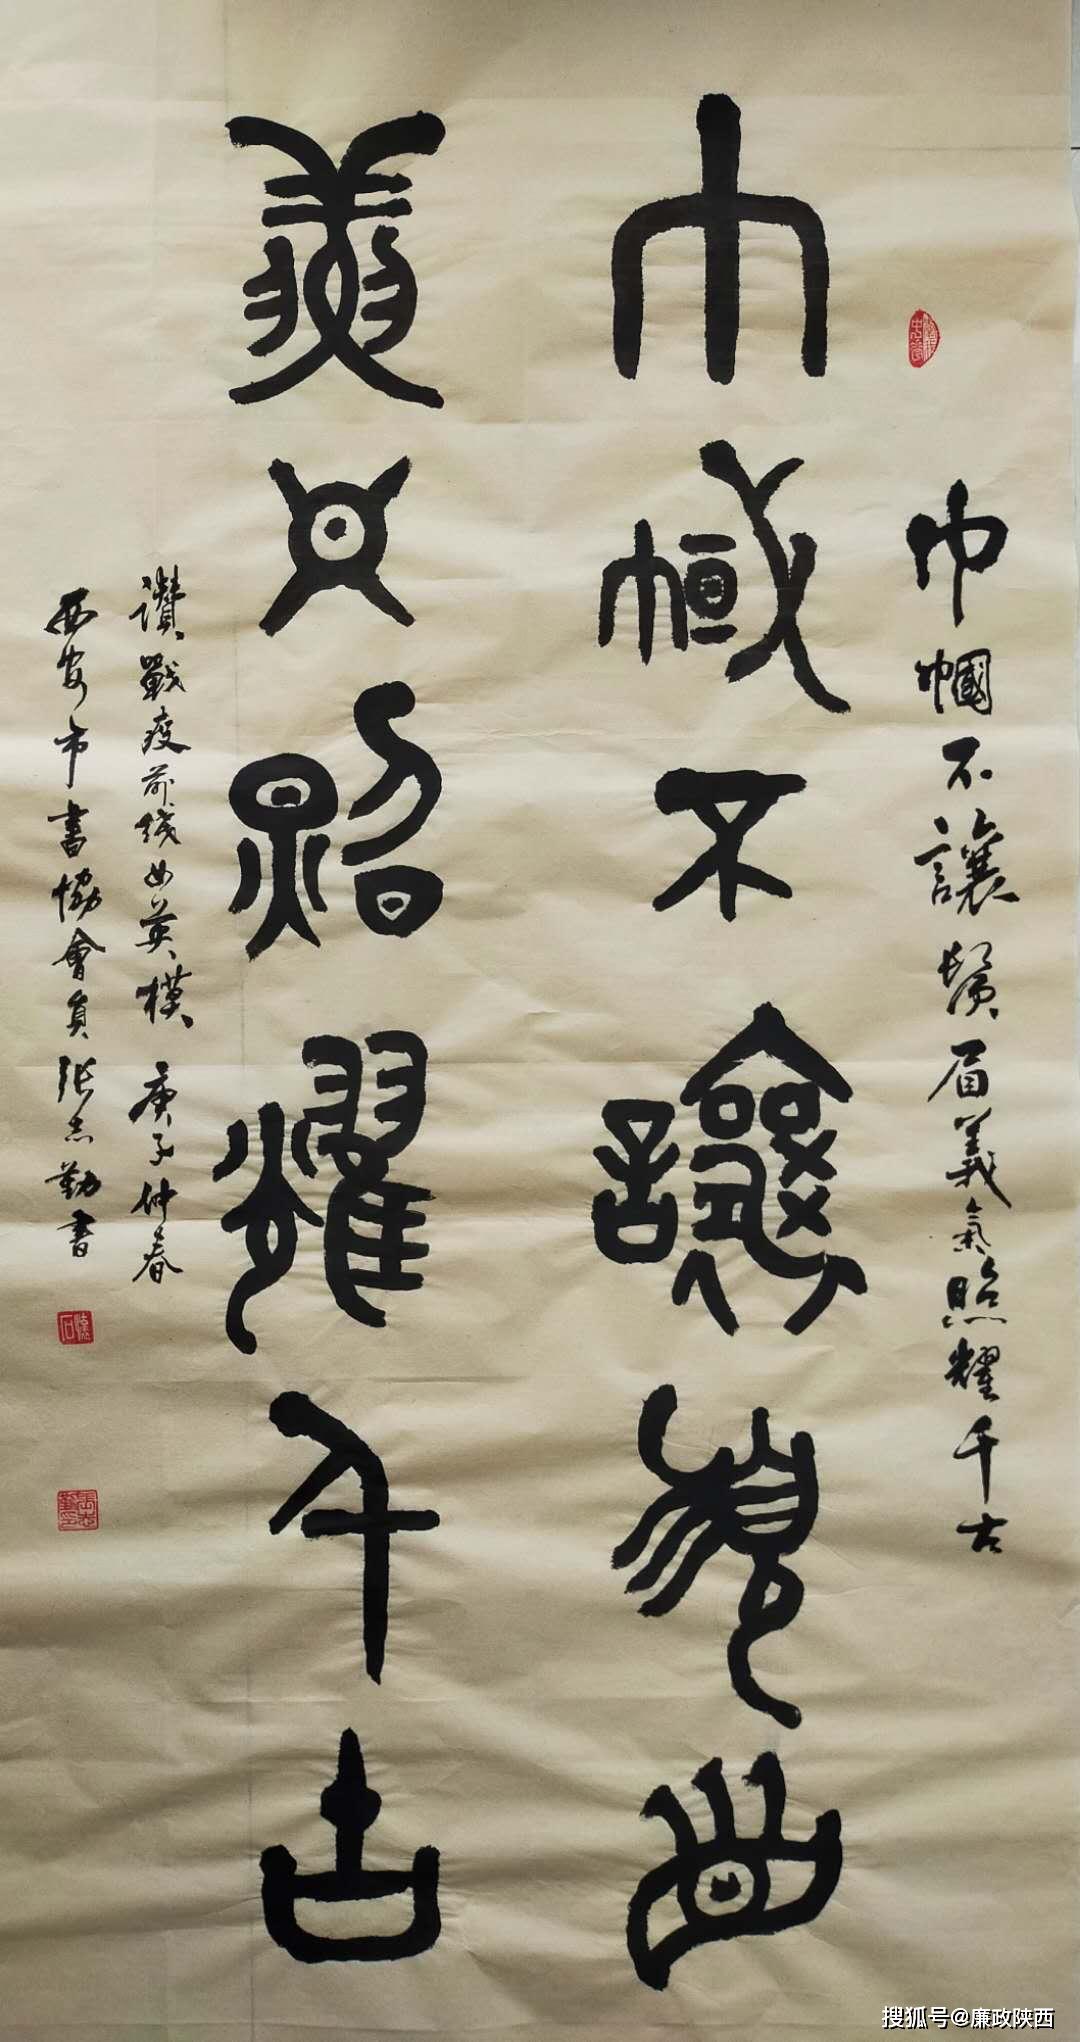 巾幗不讓鬚眉義氣照耀千古
巾幗不讓鬚眉
義氣照耀千古
讚戰疫前綫女英模 庚子仲春
西安市書協會員張志勤書
搜狐号@廉政陕西